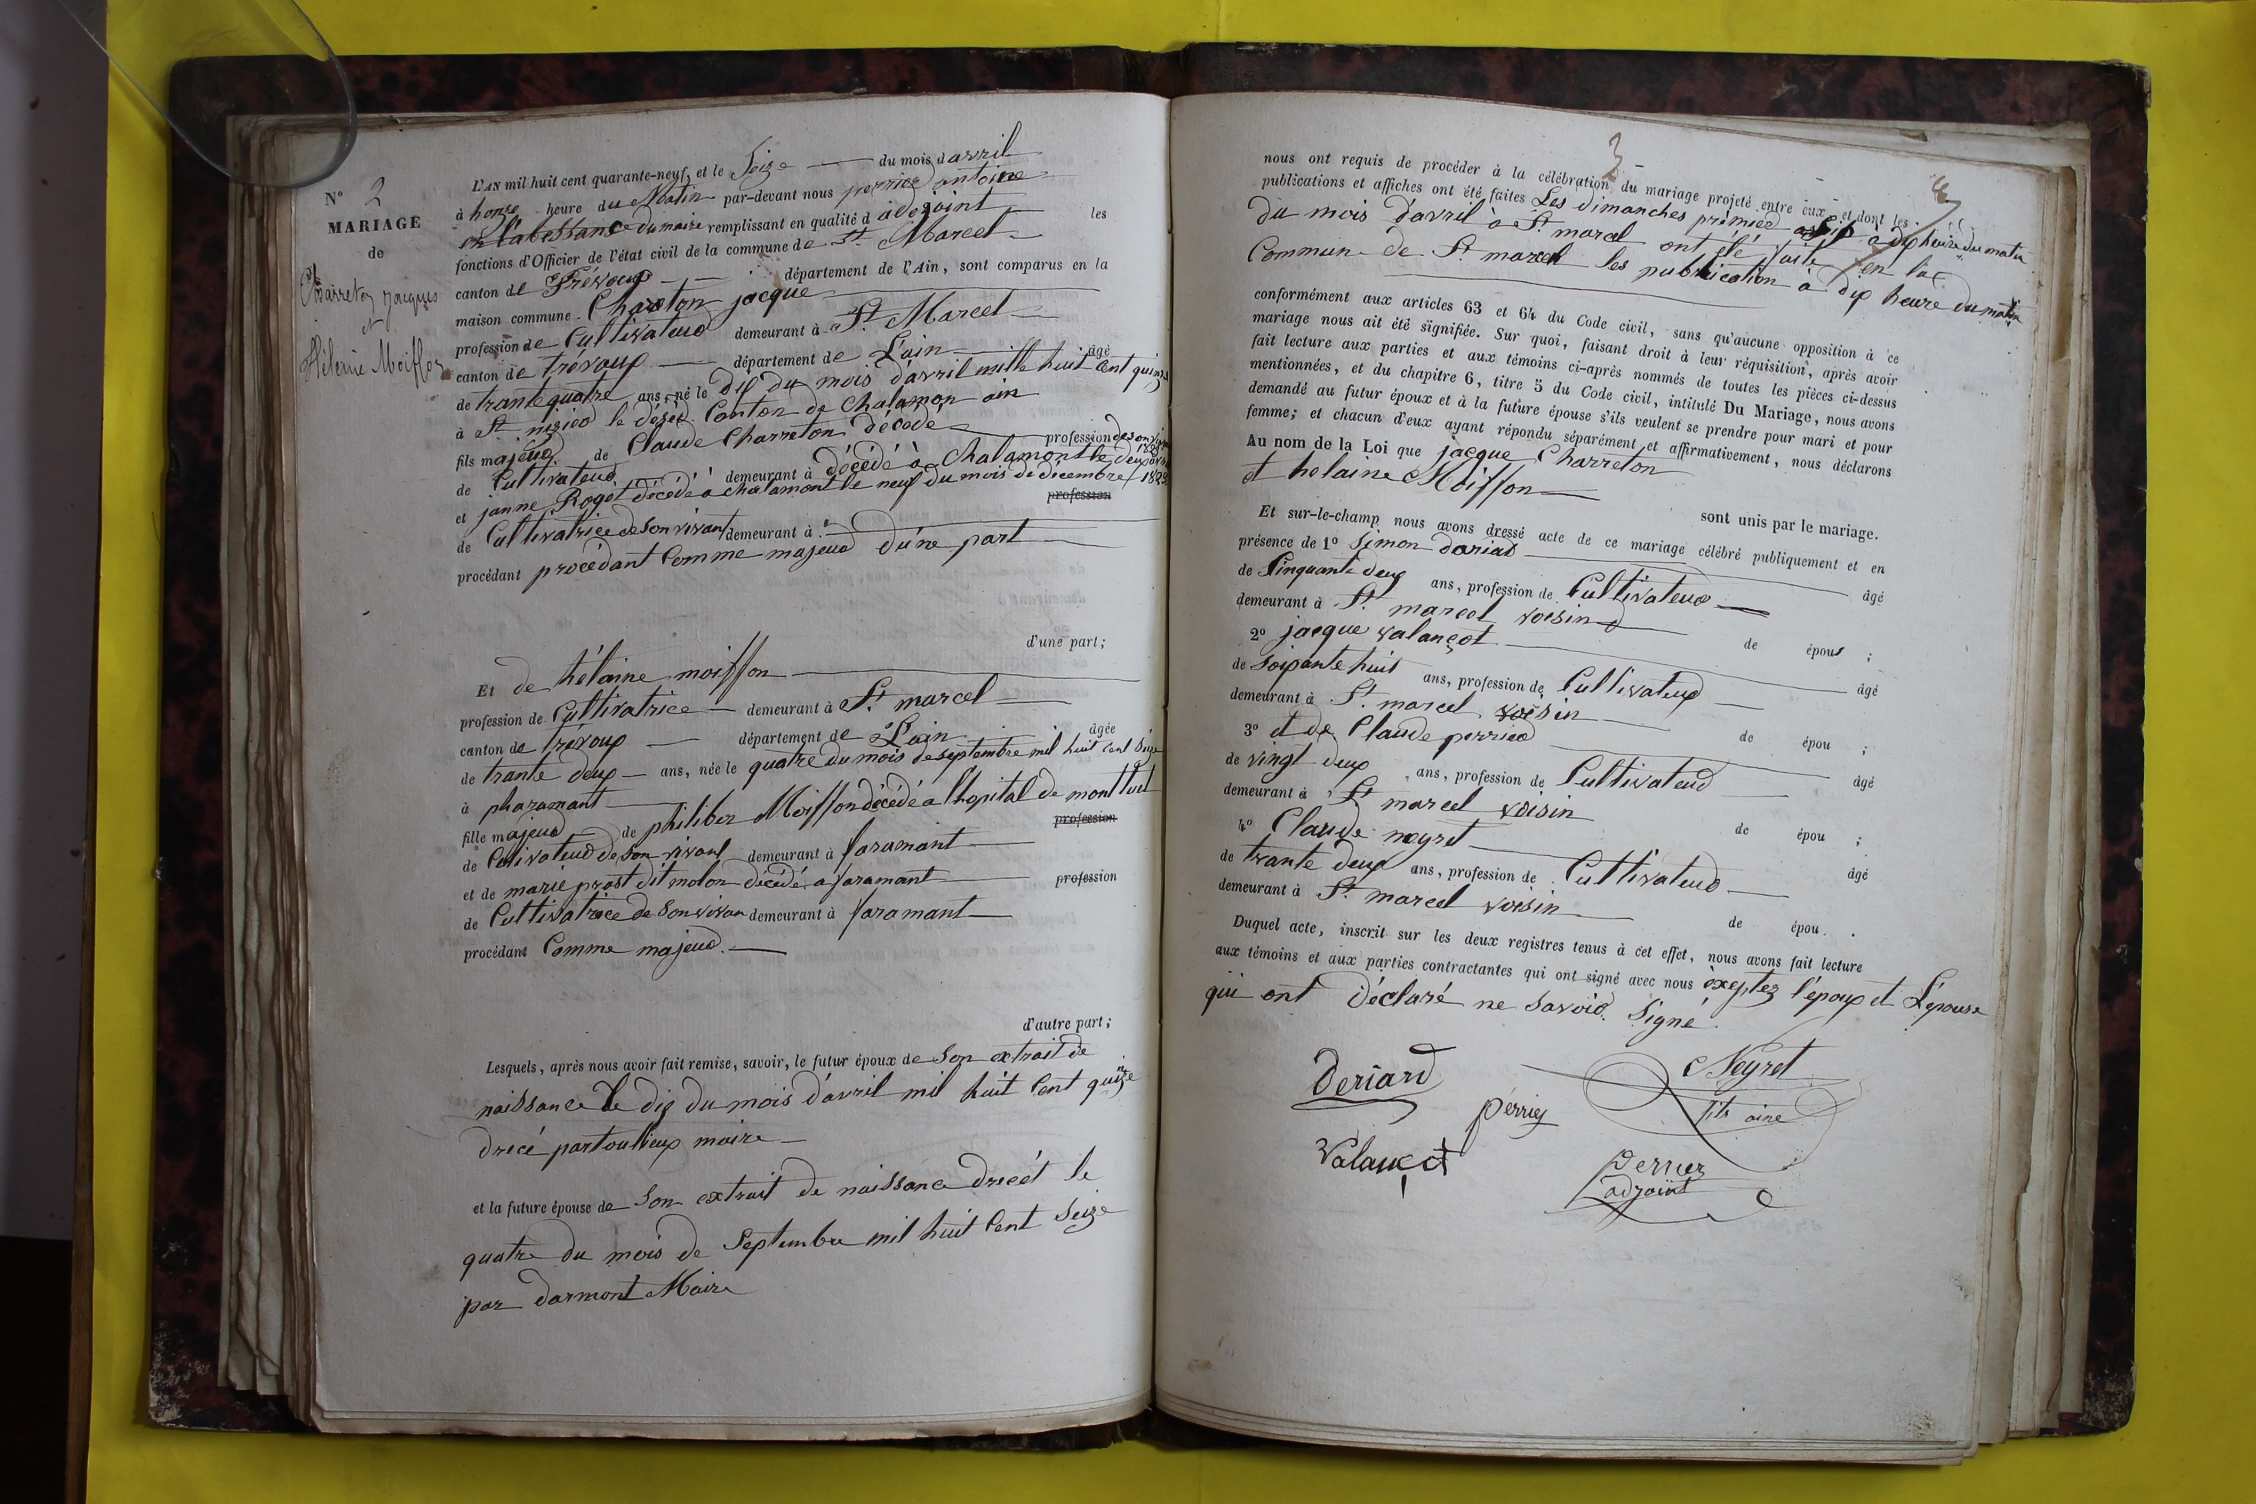 N° 2
MARIAGE
de
Charreton Jacques
et
Hélène Moiffon
L'AN mil huit cent quarante-neuf, et le Seize du mois d'avril
à honze heure du Matin par-devant nous perrier antoine
en l'abessance du maire remplissant en qualité d adejoint les
fonctions d'Officier de l'état civil de la commune de St. Marcel
canton de Trévoux département de l'Ain, sont comparus en la
maison commune Charreton jacque
profession de Cultivateur demeurant à St Marcel
canton de trévoux département de L'ain âgé
de trante quatre ans, né le dix du mois d'avril mille huit Cent quinze
à St nizier le désér Canton de Chalamon ain
fils majeur de Claude Charreton décédé profession de son vivan
de Cultivateur demeurant à décédé à Chalamont le deux avril 1828
et janne Roget décédé à chalamont le neuf du mois de décembre 1825 profession
de Cultivatrice de Son vivant demeurant à
procédant procédant Comme majeur d'une part
d'une part;
Et de hélaine moiffon
profession de Cultivatrice demeurant à St. marcel
canton de trévoux département de L'ain âgée
de trante deux ans, née le quatre du mois de septembre mil huit Cent Seize
à pharamant
fille majeur de philiber Moiffon décédé a l'hopital de montluel profession
de Cultivateur de Son vivant demeurant à faramant
et de marie prost dit molon décédé a faramant profession
de Cultivatrice de Son vivan demeurant à faramant
procédant Comme majeur.
d'autre part;
Lesquels, après nous avoir fait remise, savoir, le futur époux de Son extrait de
naissance le dix du mois d'avril mil huit Cent quinze
drecé par toullieux maire
et la future épouse de Son extrait de naissance drecét le
quatre du mois de Septembre mil huit Cent Seize
par darmont Maire
3
nous ont requis de procéder à la célébration du mariage projeté entre eux et dont les
publications et affiches ont été faites Les dimanches prémier à dix heure du matin
du mois d'avril à St marcel ont été faite en la
Commune de St marcel les publication à dix heure du matin
conformément aux articles 63 et 64 du Code civil, sans qu'aucune opposition à ce
mariage nous ait été signifiée. Sur quoi, faisant droit à leur réquisition, après avoir
fait lecture aux parties et aux témoins ci-après nommés de toutes les pièces ci-dessus
mentionnées, et du chapitre 6, titre 5 du Code civil, intitulé Du Mariage, nous avons
demandé au futur époux et à la future épouse s'ils veulent se prendre pour mari et pour
femme; et chacun d'eux ayant répondu séparément et affirmativement, nous déclarons
Au nom de la Loi que jacque Charreton
et hélaine Moiffon
sont unis par le mariage.
Et sur-le-champ nous avons dressé acte de ce mariage célébré publiquement et en
présence de 1° Simon dariat âgé
de Cinquante deux ans, profession de Cultivateur
demeurant à St. marcel voisin de épous ;
2° jacque valançot âgé
de Soixante huit ans, profession de Cultivateur
demeurant à St. marcel voisin de épou ;
3° et de Claude perrier âgé
de vingt deux ans, profession de Cultivateur
demeurant à St marcel voisin de épou ;
4° Claude neyret âgé
de trante deux ans, profession de Cultivateur
demeurant à St marcel voisin de épou .
Duquel acte, inscrit sur les deux registres tenus à cet effet, nous avons fait lecture
aux témoins et aux parties contractantes qui ont signé avec nous exeptez l'époux et L'épouse
qui ont déclaré ne Savoir Signé
deriard
Neyret
fils ainé
perrier
Valançot
perrier
adjoint